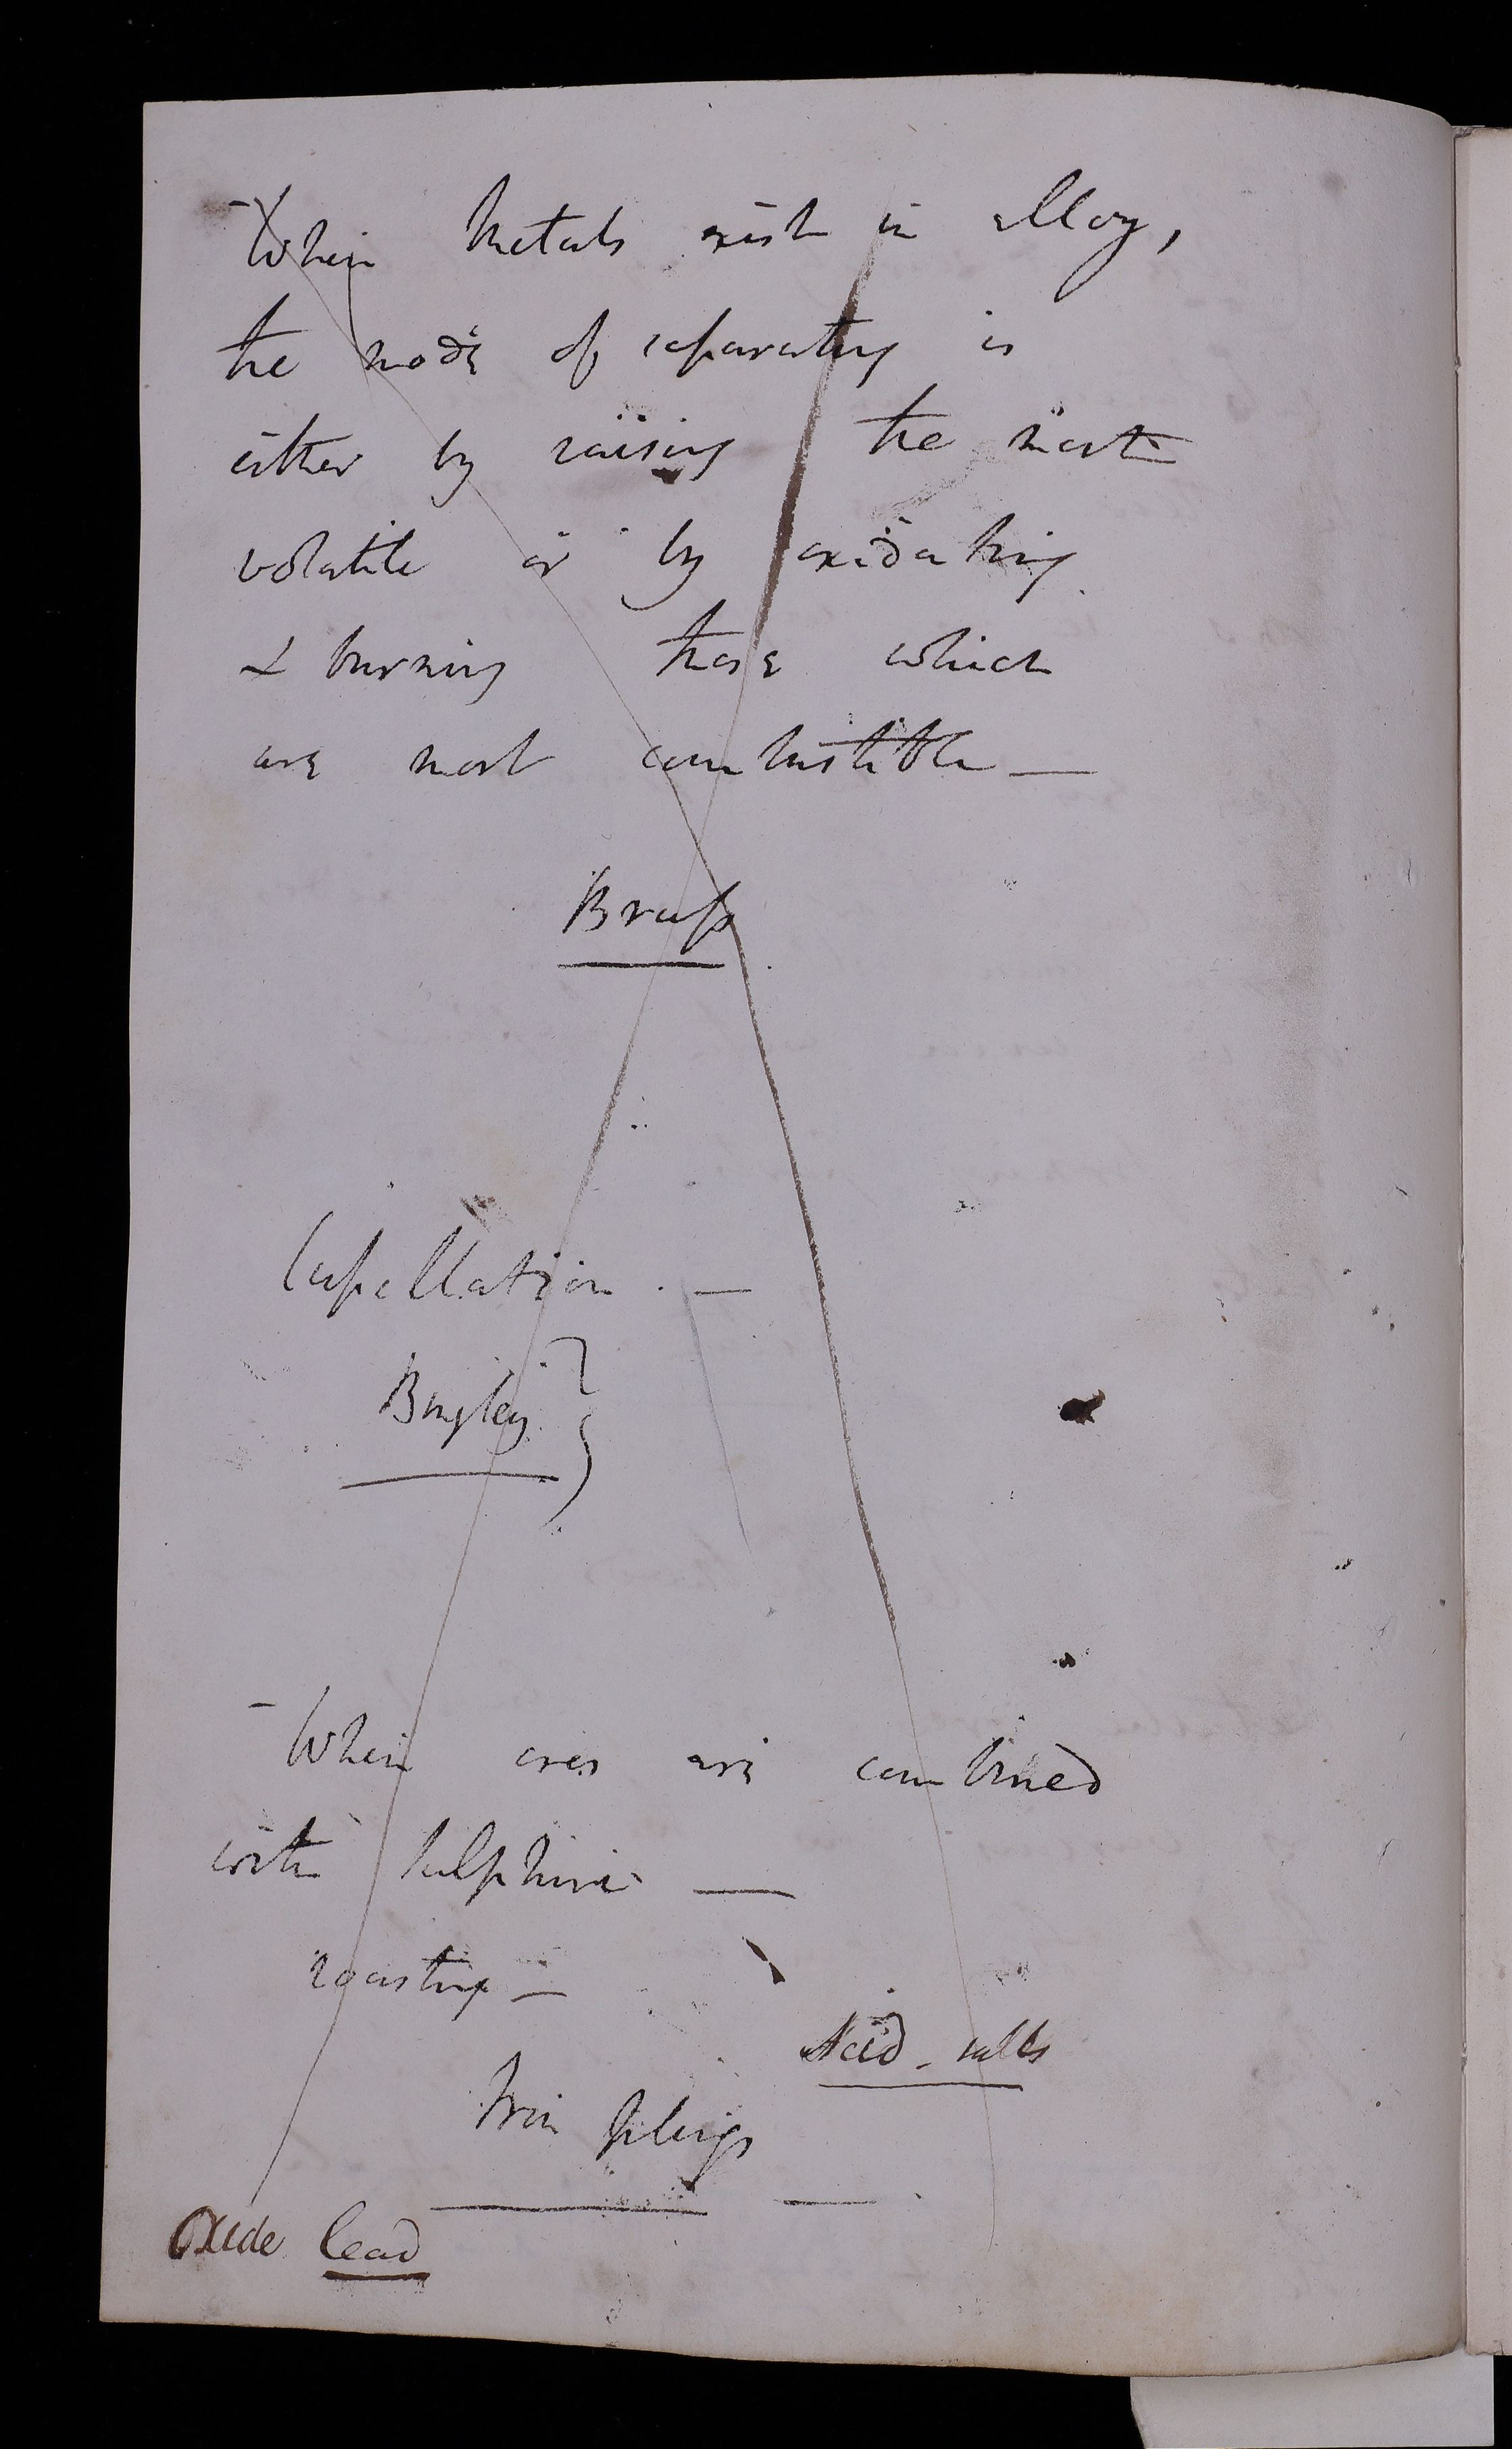 - When Metals exist in alloy,
the mode of separating is
either by raising the most
volatile or by oxidating
& burning those which
are most combustible —
Brass
Cupellation. —
Bingley }
- When ores are combined
with Sulphur —
roasting —
Acid - salts
Iron filings —
Oxide lead